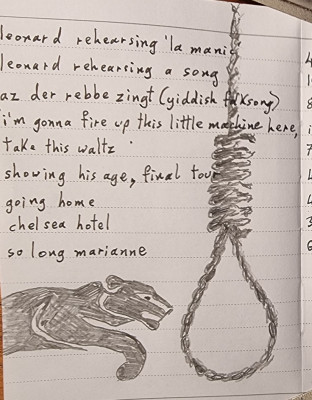 leonard rehearsing 'la manic
leonard rehearsing a song
az der rebbe zingt (yiddish folksong)
i'm gonna fire up this little machine here,
take this waltz
showing his age, final tour
going home
chelsea hotel
so long marianne